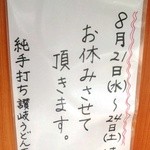 8月21日(水)~24日(土)
お休みさせて
頂きます。
純手打ち讃岐うどん